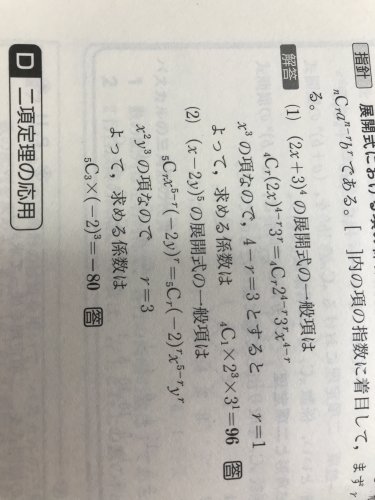 指針 展開式における
ₙCᵣaⁿ⁻ʳbʳである。[ ]内の項の指数に着目して，まず r
る。
解答 (1) (2x+3)⁴の展開式の一般項は
₄Cᵣ(2x)⁴⁻ʳ3ʳ=₄Cᵣ2⁴⁻ʳ3ʳx⁴⁻ʳ
x³の項なので，4−r=3とすると r=1
よって，求める係数は ₄C₁×2³×3¹=96 答
(2) (x−2y)⁵の展開式の一般項は
₅Cᵣx⁵⁻ʳ(−2y)ʳ=₅Cᵣ(−2)ʳx⁵⁻ʳyʳ
x²y³の項なので r=3
よって，求める係数は
₅C₃×(−2)³=−80 答
D 二項定理の応用